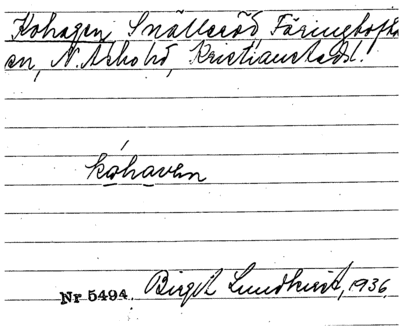 Kohagen, Snälleröd Färinghofta
en, N. Åsbo hd, Kristianstadsl.
kóhaven
Nr 5494. Birgit Lundkvist, 1936.